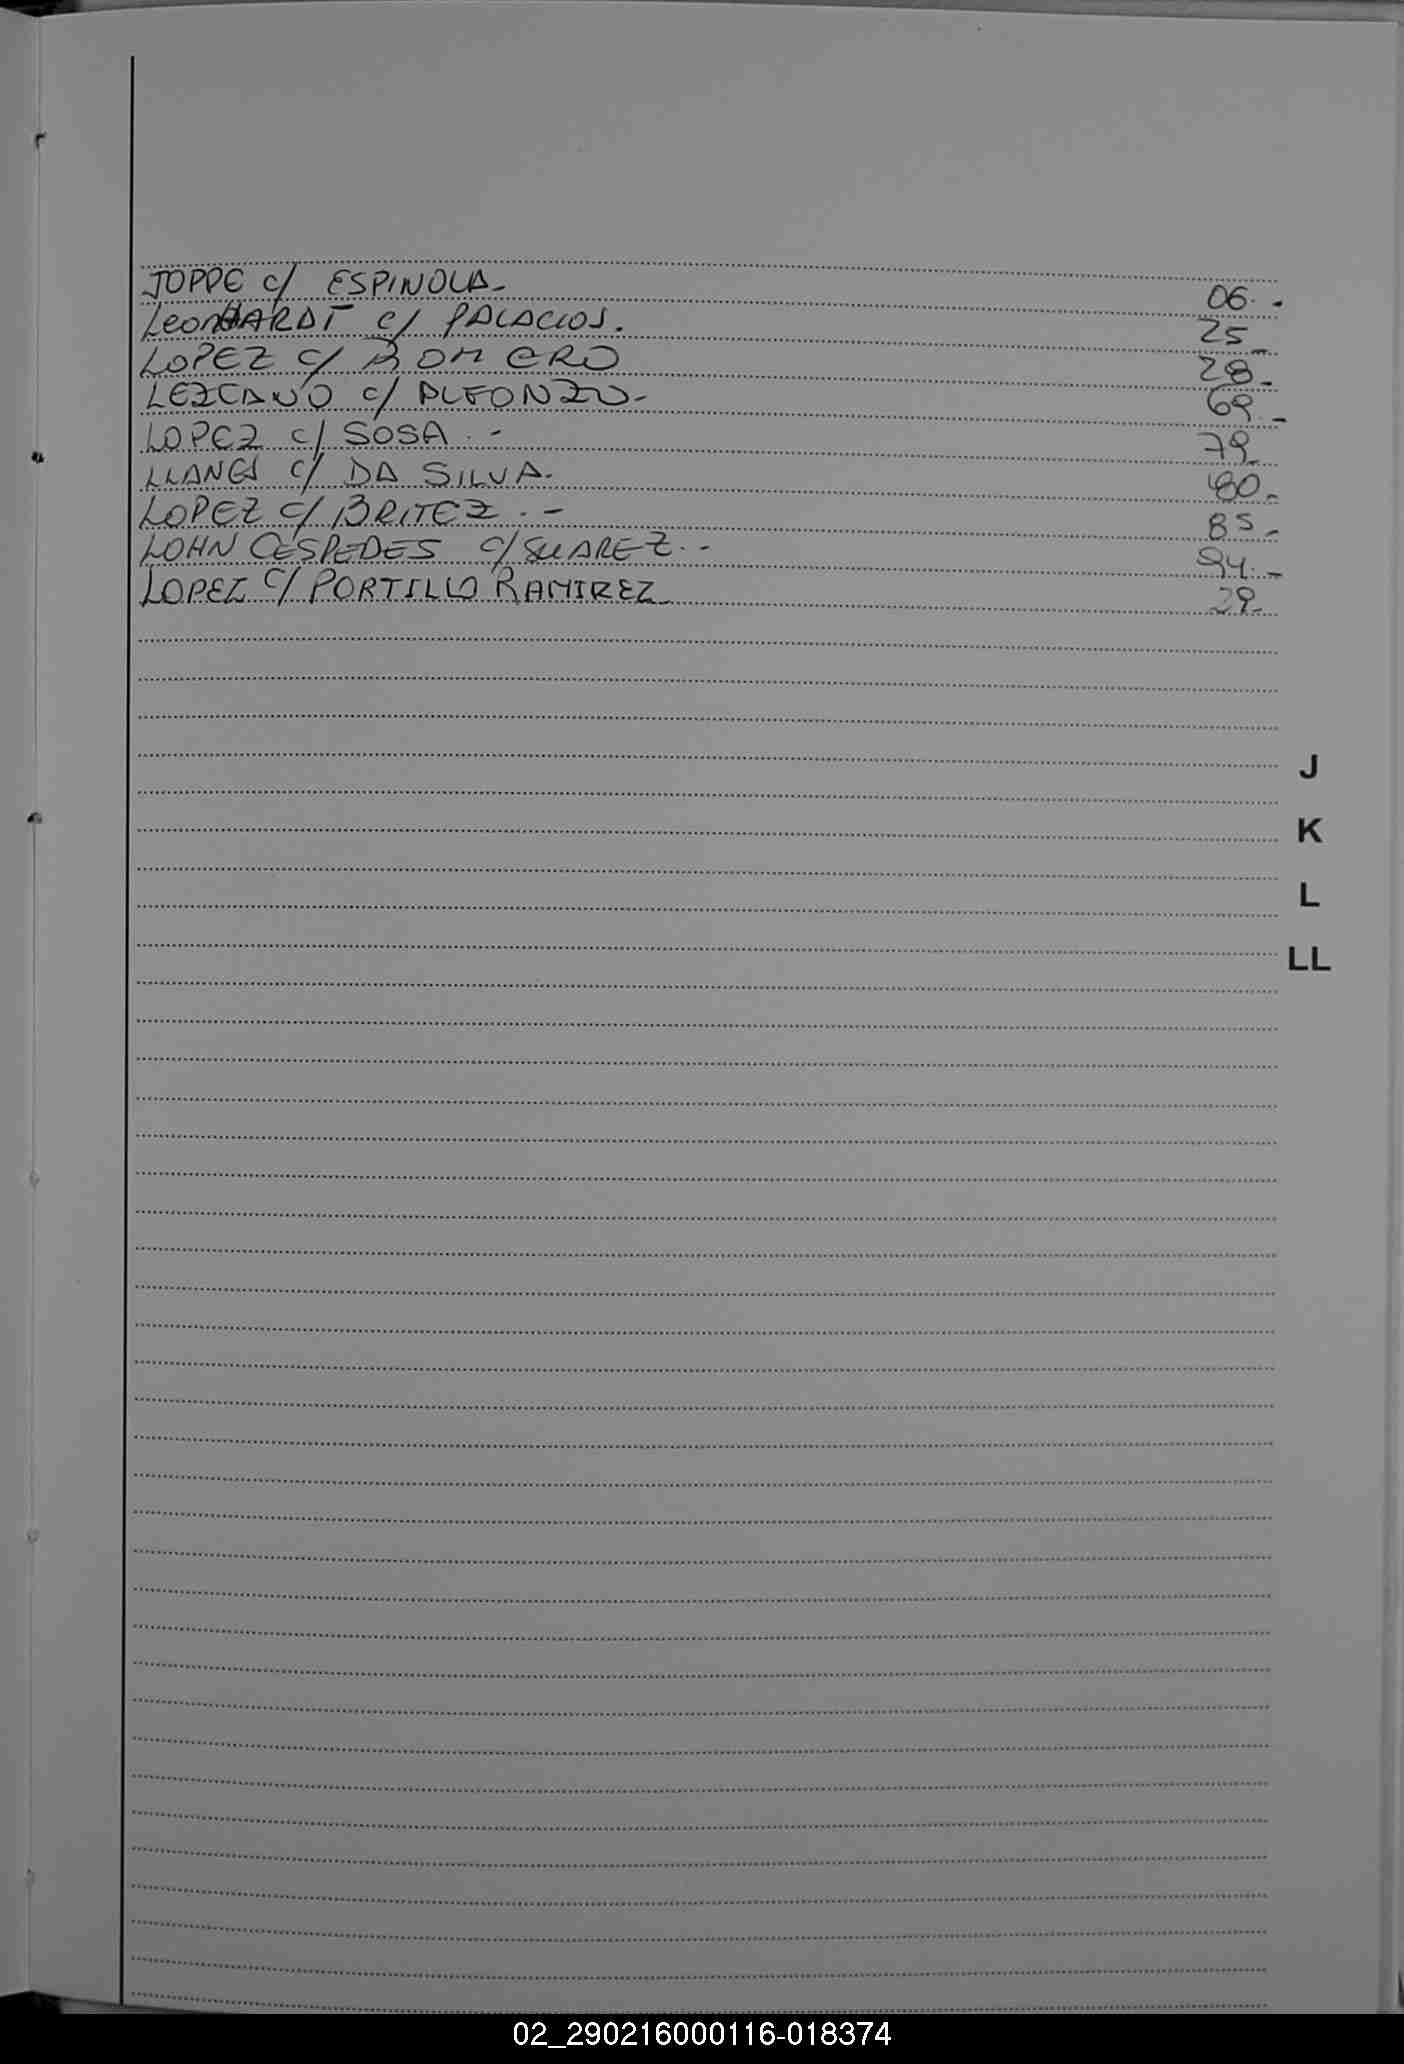 JOPPE c/ ESPINOLA- 06.-
LeonHARDT c/ PALACIOS. 25-
LOPEZ c/ ROMERO 28-
LEZCANO c/ ALFONZO- 69.-
LOPEZ c/ SOSA.- 79-
LLANES c/ DA SILVA. 80-
LOPEZ c/ BRITEZ.- 85-
LOHN CESPEDES c/ SUAREZ.- 94.-
LOPEZ c/ PORTILLO RAMIREZ 29-
J
K
L
LL
02_290216000116-018374